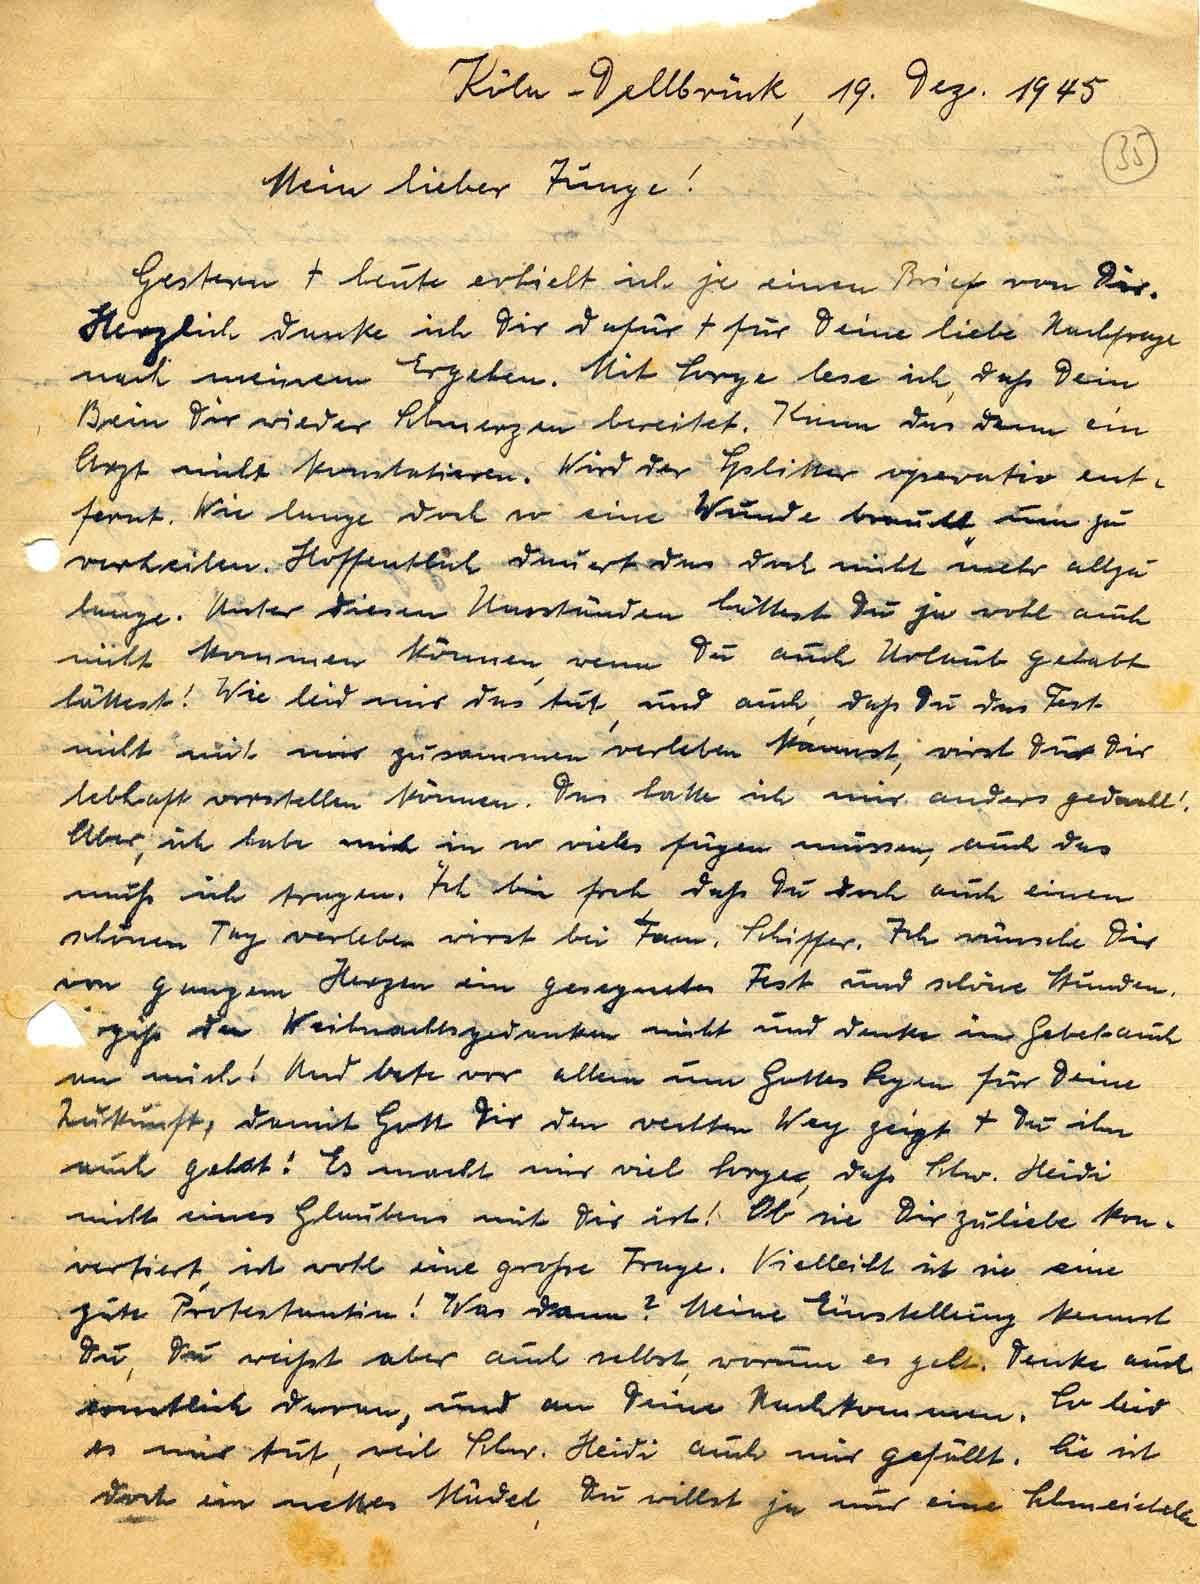 Köln-Dellbrück, 19. Dez. 1945
35
Mein lieber Junge!
Gestern + heute erhielt ich je einen Brief von Dir.
Herzlich danke ich Dir dafür + für Deine liebe Nachfrage
nach meinem Ergehen. Mit Sorge lese ich, daß Dein
Bein Dir wieder Schmerzen bereitet. Kann das denn ein
Arzt nicht konstatieren. Wird der Splitter operativ ent-
fernt. Wie lange doch so eine Wunde braucht um zu
verheilen. Hoffentlich dauert das doch nicht mehr allzu
lange. Unter diesen Umständen hättest Du ja wohl auch
nicht kommen können, wenn Du auch Urlaub gehabt
hättest! Wie leid mir das tut, und auch, daß Du das Fest
nicht mit mir zusammen verleben kannst, wirst Du Dir
lebhaft vorstellen können. Das hatte ich mir anders gedacht!
Aber, ich habe mich in so vieles fügen müssen, auch das
muß ich tragen. Ich bin froh, daß Du doch auch einen
schönen Tag verleben wirst bei Fam. Schiffer. Ich wünsche Dir
von ganzem Herzen ein gesegnetes Fest und schöne Stunden.
giß den Weihnachtsgedanken nicht und denke im Gebet auch
an mich! Und bete vor allem um Gottes Segen für Deine
Zukunft, damit Gott Dir den rechten Weg zeigt + Du ihn
auch gehst! Es macht mir viel Sorge, daß Schw. Heidi
nicht eines Glaubens mit Dir ist! Ob sie Dir zuliebe kon-
vertiert, ist wohl eine große Frage. Vielleicht ist sie eine
gute Protestantin! Was dann? Meine Einstellung kennst
Du, Du weißt aber auch selbst, worum es geht. Denke auch
ernstlich daran, und an Deine Nachkommen. So leid
es mir tut, weil Schw. Heidi auch mir gefällt. Sie ist
doch ein nettes Mädel, Du willst ja nur eine